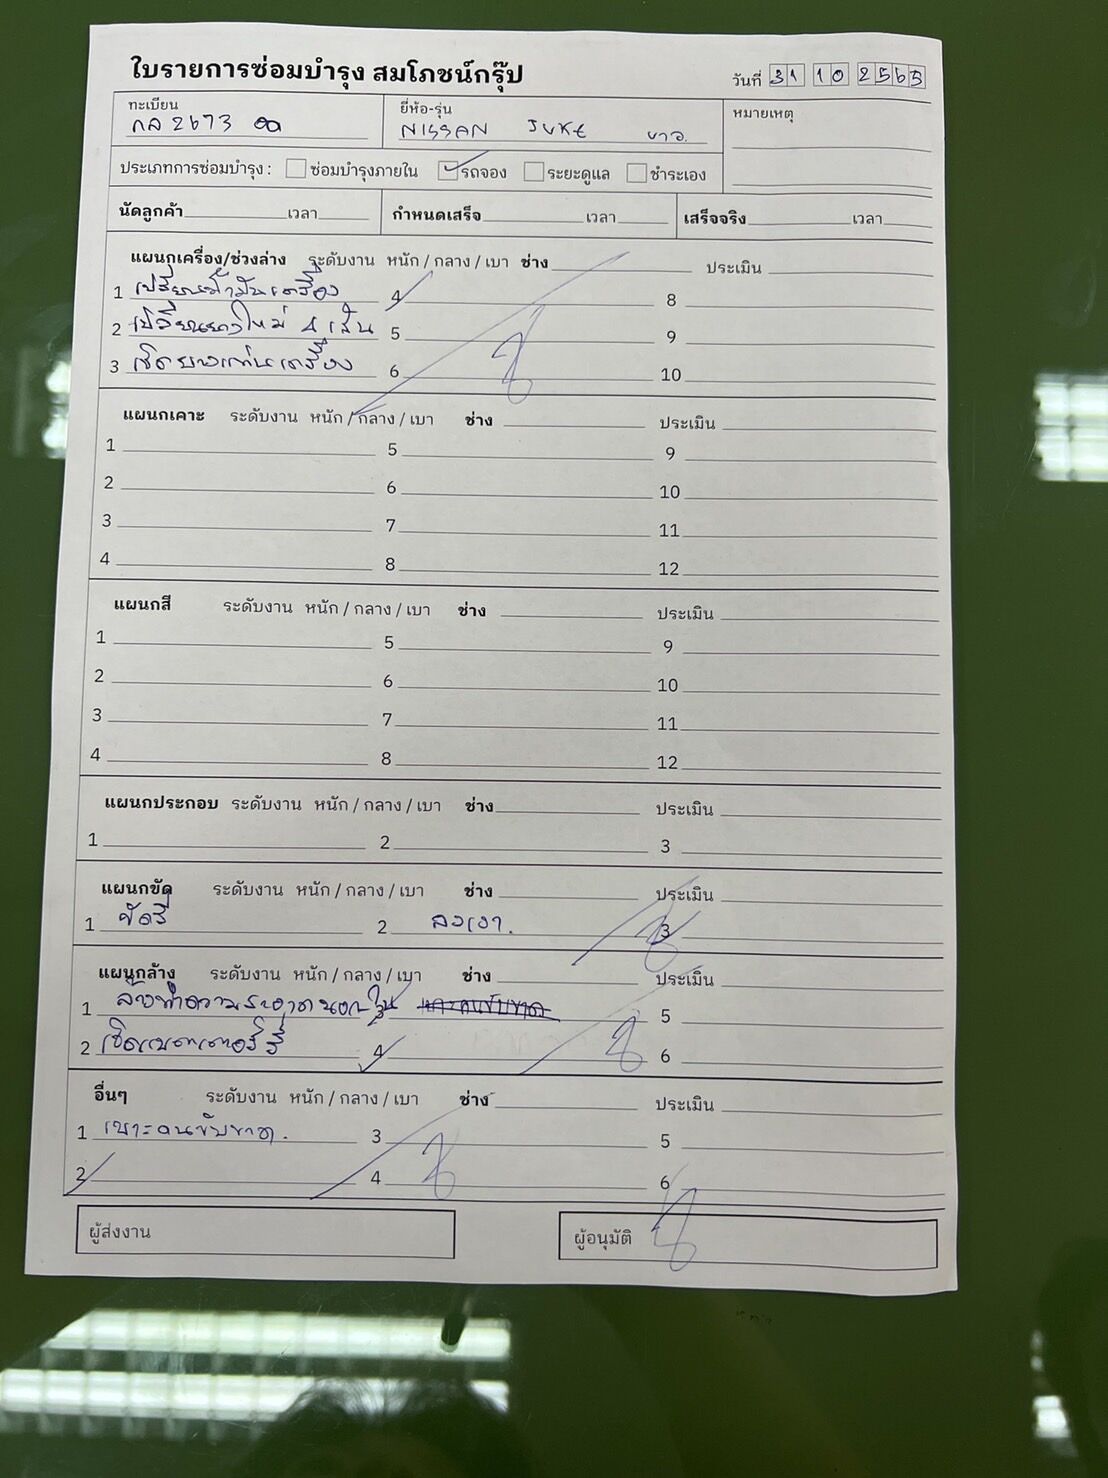 ใบรายการซ่อมบำรุง สมโภชน์กรุ๊ป
วันที่ 31 10 2565
ทะเบียน
กล 2673
ยี่ห้อ-รุ่น
NISSAN JUKE ขาว
หมายเหตุ
ประเภทการซ่อมบำรุง : ซ่อมบำรุงภายใน รถจอง ระยะดูแล ชำระเอง
นัดลูกค้า เวลา กำหนดเสร็จ เวลา เสร็จจริง เวลา
แผนกเครื่อง/ช่วงล่าง ระดับงาน หนัก / กลาง / เบา ช่าง ประเมิน
1 เปลี่ยนน้ำมันเครื่อง 4 8
2 เปลี่ยนยางใหม่ 4 เส้น 5 9
3 เช็คยางแท่นเครื่อง 6 10
แผนกเคาะ ระดับงาน หนัก / กลาง / เบา ช่าง ประเมิน
1 5 9
2 6 10
3 7 11
4 8 12
แผนกสี ระดับงาน หนัก / กลาง / เบา ช่าง ประเมิน
1 5 9
2 6 10
3 7 11
4 8 12
แผนกประกอบ ระดับงาน หนัก / กลาง / เบา ช่าง ประเมิน
1 2 3
แผนกขัด ระดับงาน หนัก / กลาง / เบา ช่าง ประเมิน
1 ขัดสี 2 ลงเงา. 3
แผนกล้าง ระดับงาน หนัก / กลาง / เบา ช่าง ประเมิน
1 ล้างทำความสะอาดนอกใน 3 5
2 เช็คแบตเตอร์รี่ 4 6
อื่นๆ ระดับงาน หนัก / กลาง / เบา ช่าง ประเมิน
1 เบาะคนขับขาด. 3 5
2 4 6
ผู้ส่งงาน
ผู้อนุมัติ